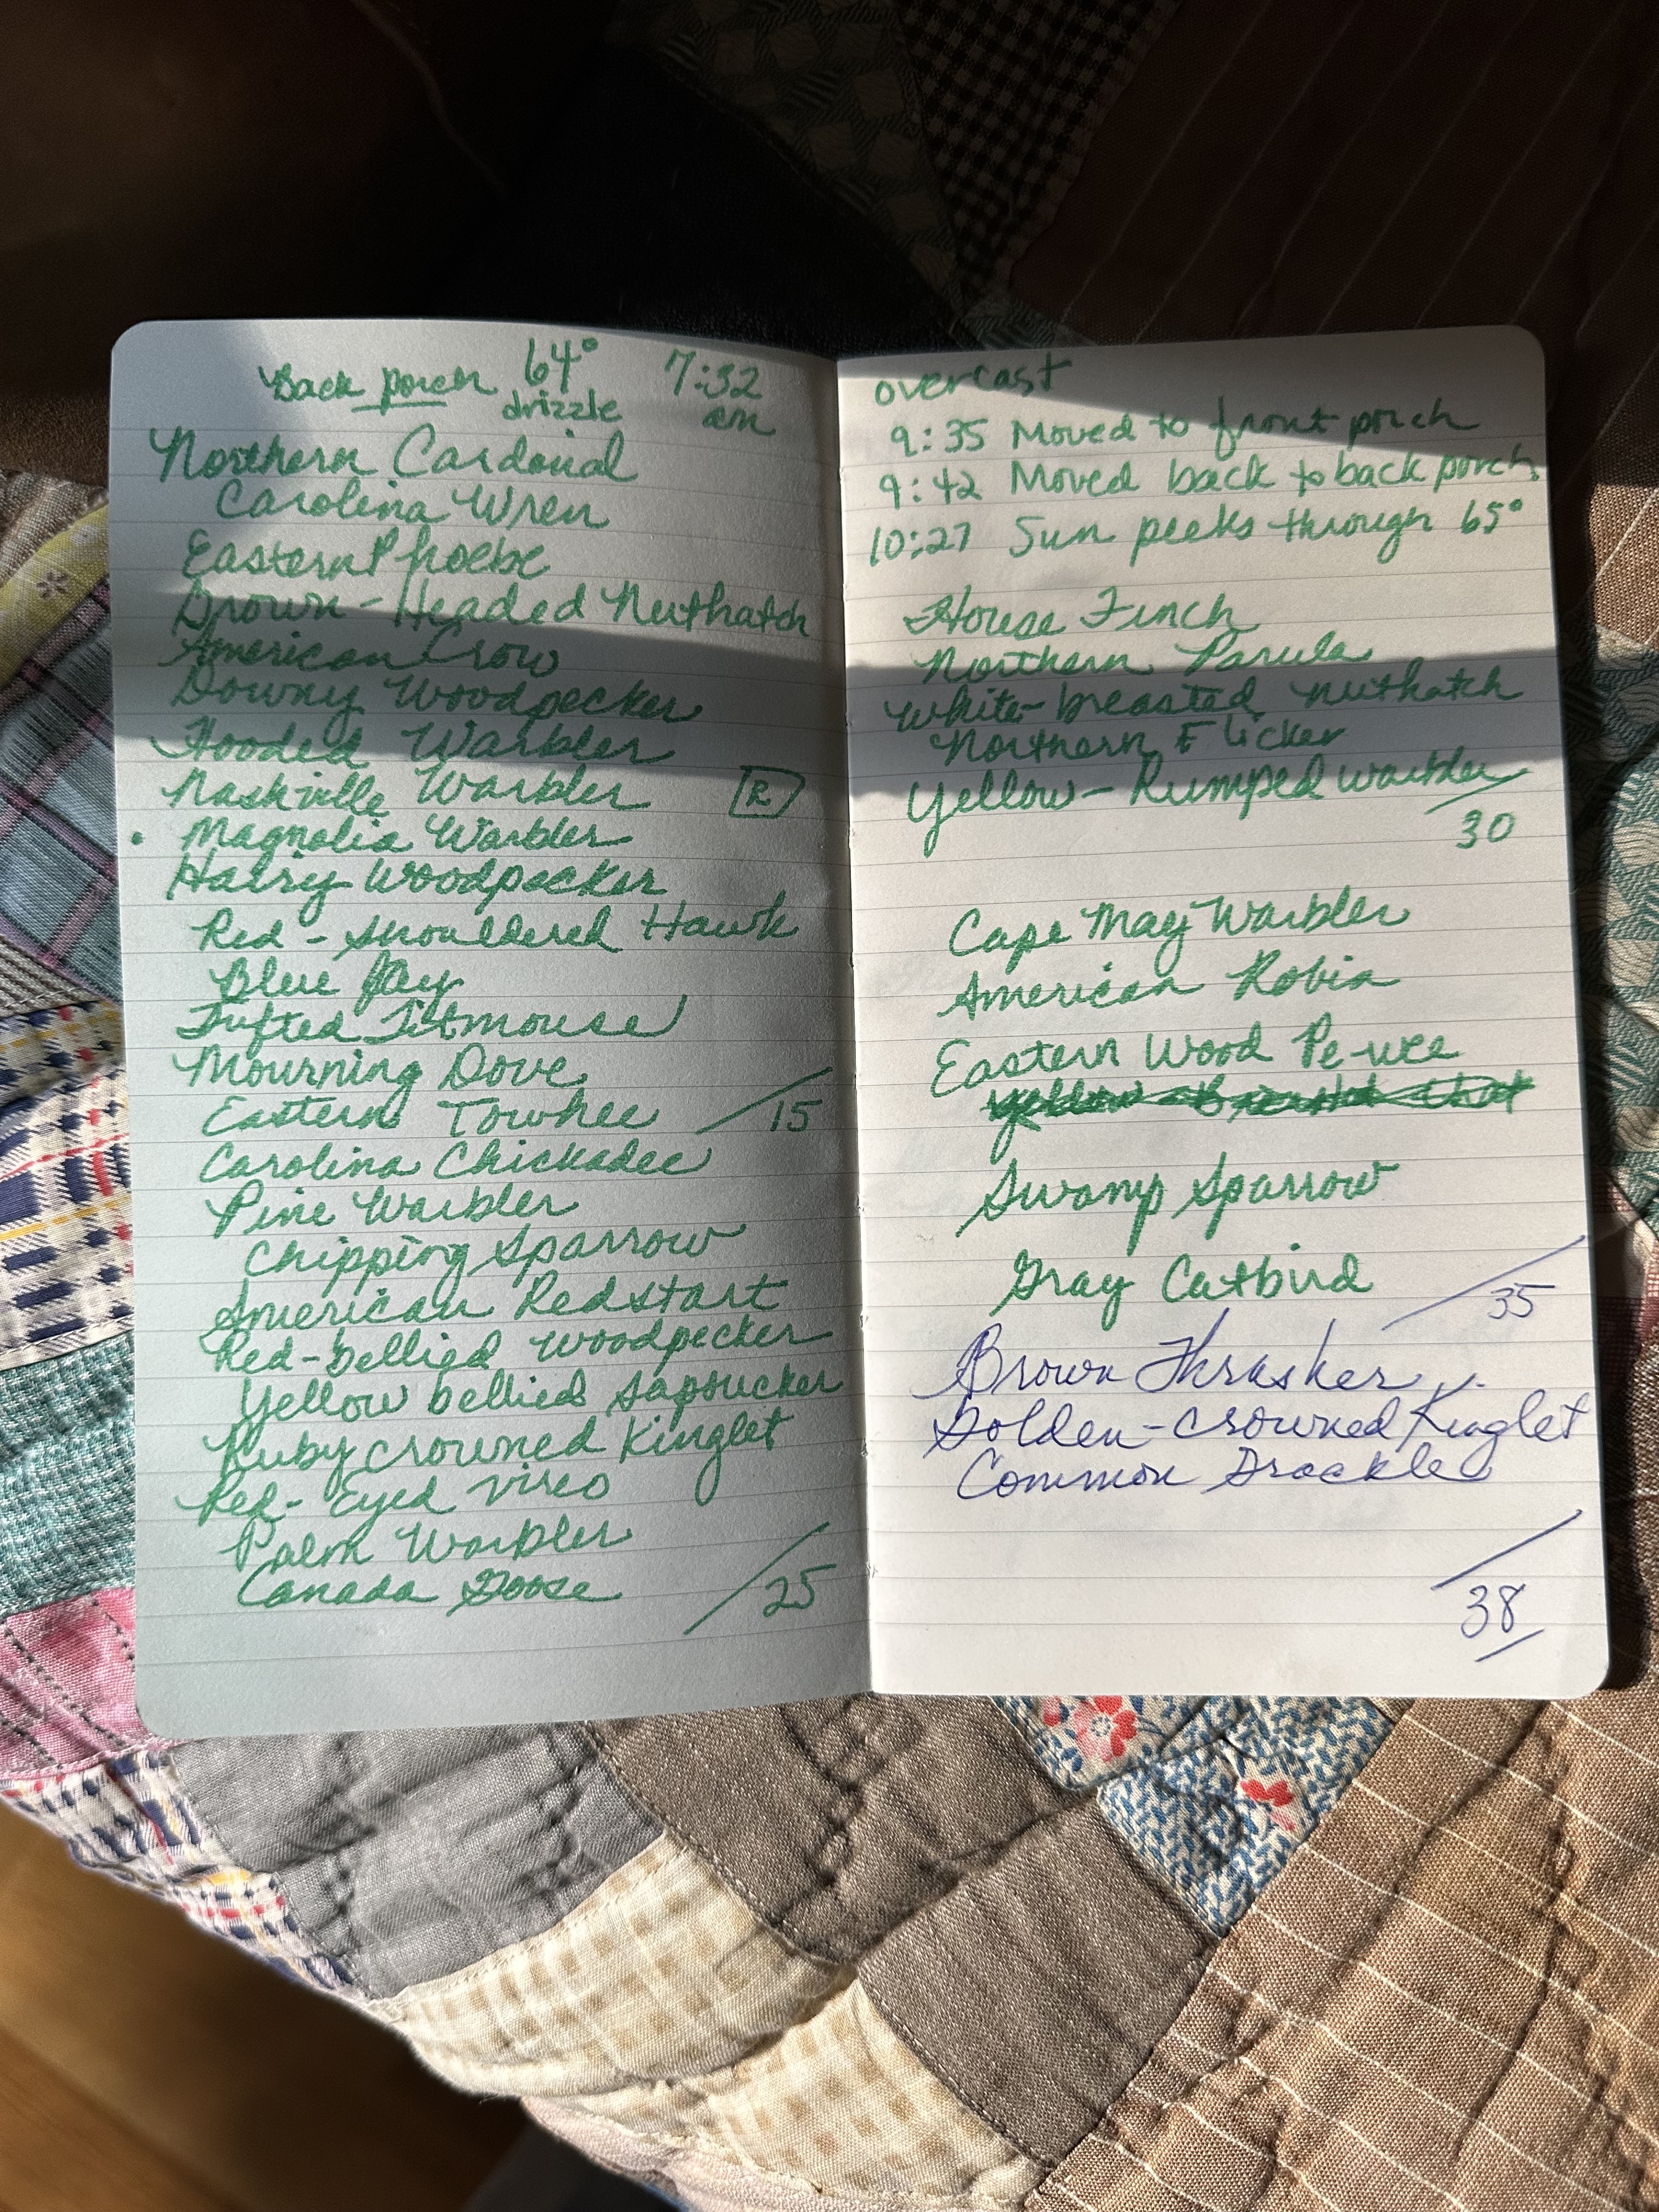 Back porch 64° 7:32
drizzle am
Northern Cardonial
Carolina Wren
Eastern Phoebe
Brown-Headed Nuthatch
American Crow
Downy Woodpecker
Hooded Warbler
Nashville Warbler R
• Magnolia Warbler
Hairy Woodpecker
Red-shouldered Hawk
Blue Jay
Tufted Titmouse
Mourning Dove
Eastern Towhee /15
Carolina Chickadee
Pine Warbler
Chipping Sparrow
American Redstart
Red-bellied Woodpecker
Yellow bellied Sapsucker
Ruby crowned Kinglet
Red-Eyed Vireo
Palm Warbler
Canada Goose /25
overcast
9:35 Moved to front porch
9:42 Moved back to back porch.
10:27 Sun peeks through 65°
House Finch
Northern Parula
White-breasted nuthatch
Northern Flicker
Yellow-Rumped warbler
/30
Cape May Warbler
American Robin
Eastern Wood Pe-wee
Swamp Sparrow
Gray Catbird /35
Brown Thrasher
Golden-crowned Kinglet
Common Grackle
/38